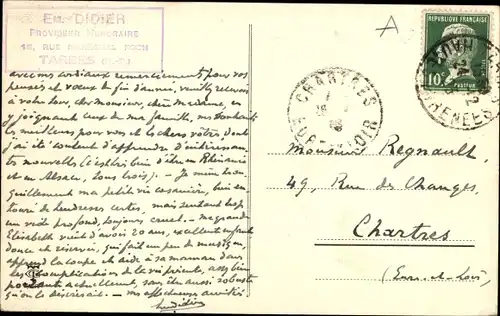 Em. DIDIER
PROVISEUR HONORAIRE
18, RUE MARÉCHAL FOCH
TARBES (H.-P.)
avec mes cordiaux remerciements pour vos
pensées et vœux de fin d'année, veuillez recevoir
à votre tour, cher monsieur, chère madame, en
y joignant ceux de ma famille, mes souhaits
les meilleurs pour vous et les chers vôtres dont
j'ai été content d'apprendre d'intéressan-
tes nouvelles (c'est très bien d'être en Rhénanie
et en Alsace, tous trois). - Je mène
ma petite vie casanière, bien en-
touré de tendresses certes, mais sentant trop
un vide profond, toujours cruel. - ma grande
Elisabeth vient d'avoir 20 ans, excellente enfant
douce et réservée, qui fait un peu de musique,
apprend la coupe et aide sa maman dans
les complications de la vie présente, assez bien
portante actuellement, sans être aussi robuste
qu'on le désirerait. - mes affectueuses amitiés
Em Didier
A
RÉPUBLIQUE FRANÇAISE
10c
PASTEUR
POSTES
HAUTES PYRÉNÉES
CHARTRES
EURE-ET-LOIR
Monsieur Regnault
49, Rue des Changes,
Chartres
(Eure-et-Loir)